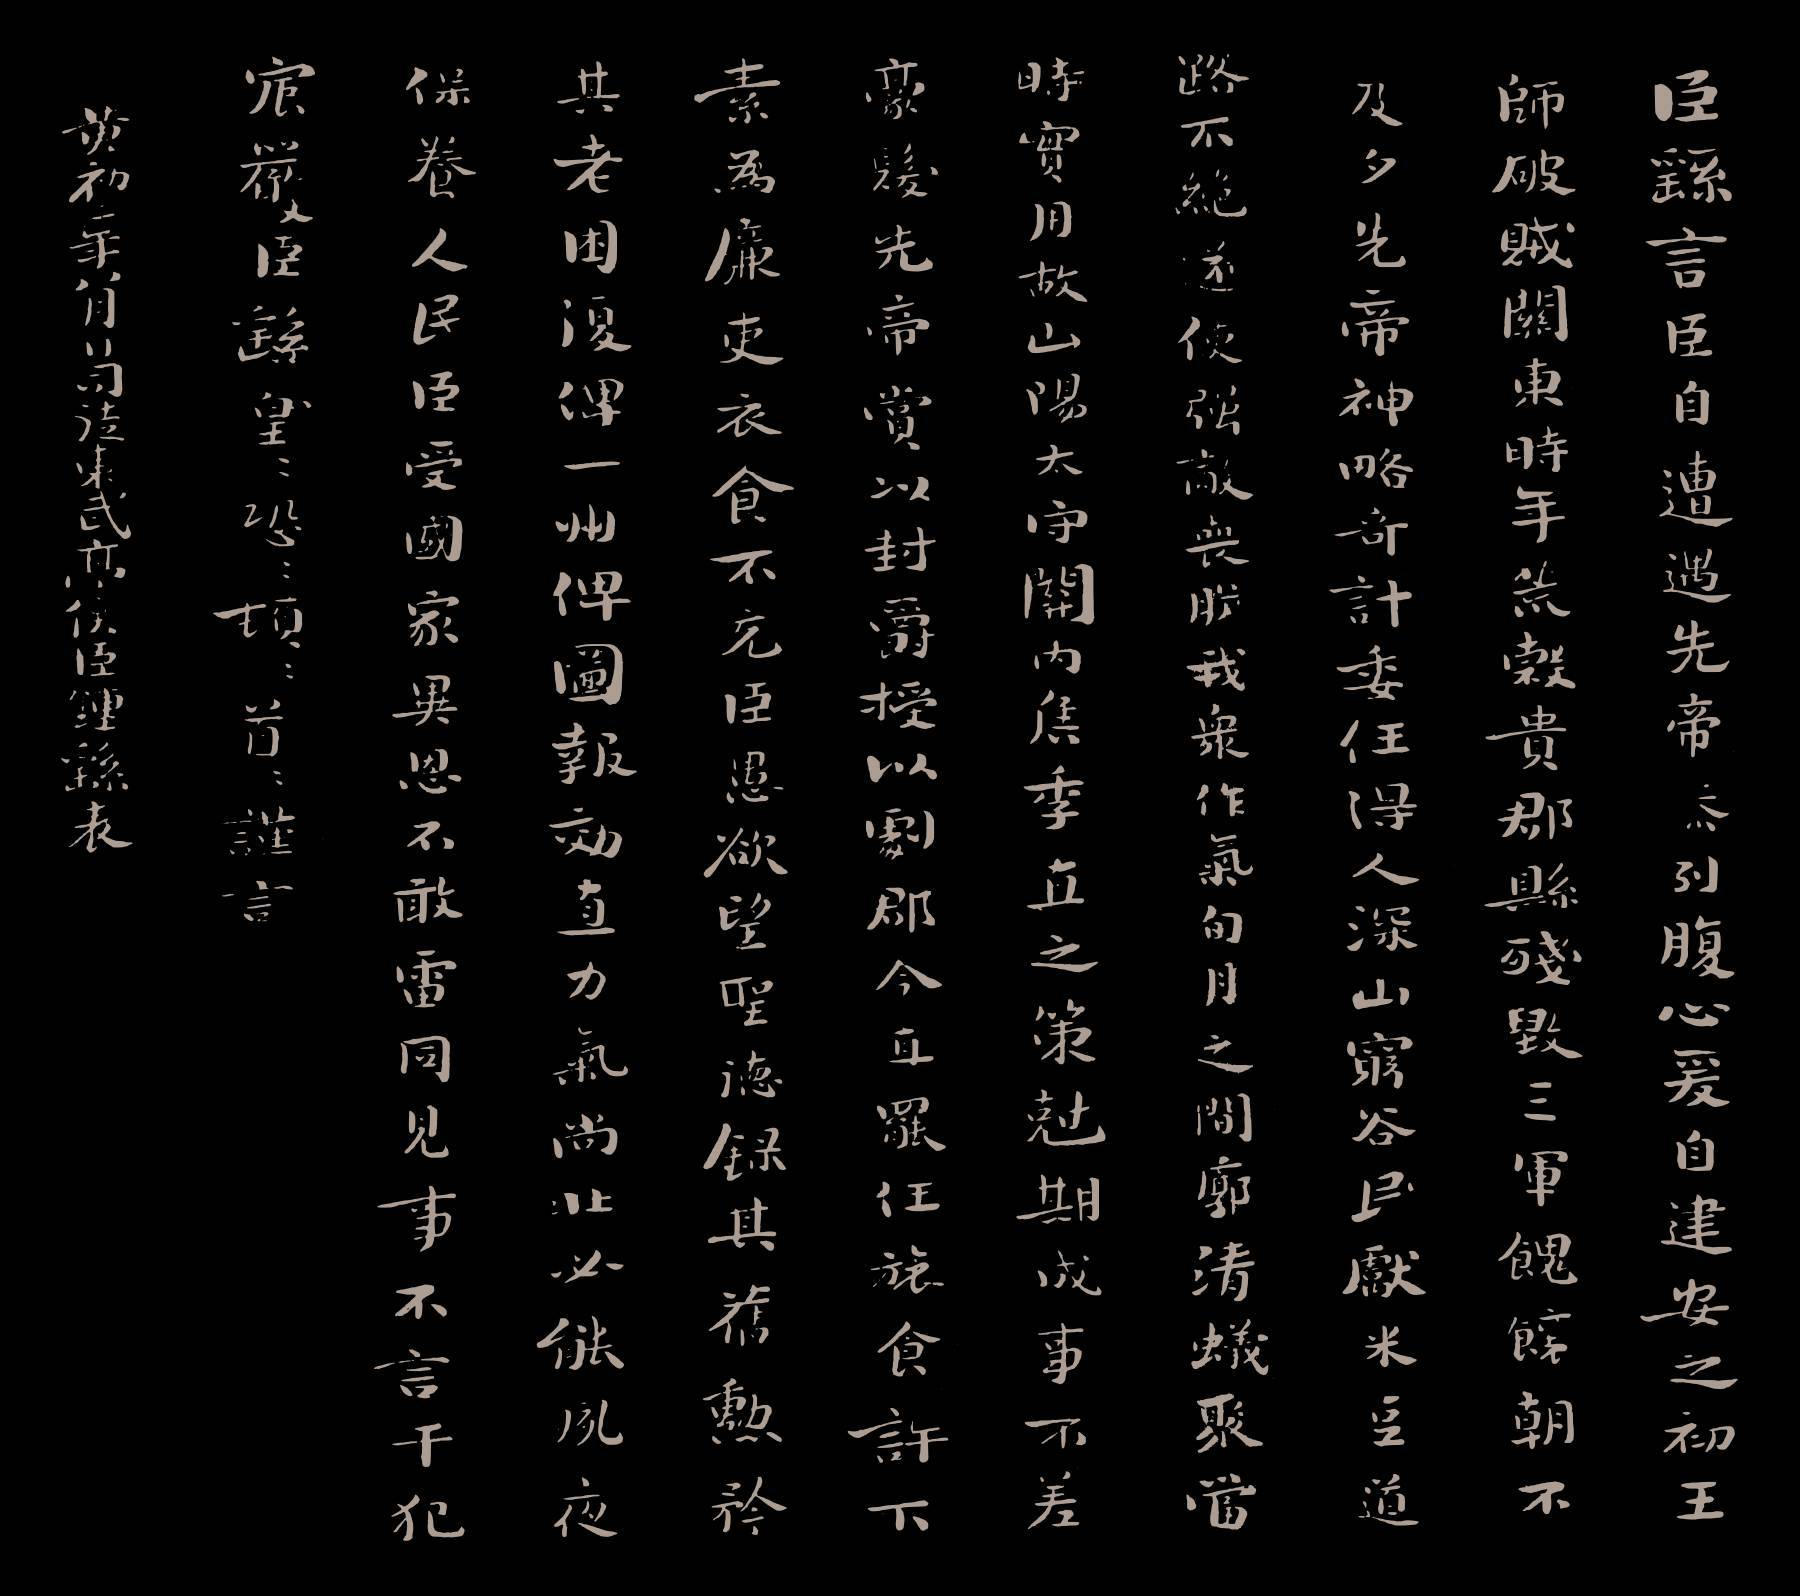 臣繇言臣自遭遇先帝忝列腹心爰自建安之初王
師破賊關東時年荒穀貴郡縣殘毀三軍餽饟朝不
及夕先帝神略奇計委任得人深山窮谷民獻米豆道
路不絕遂使強敵喪膽我衆作氣旬月之間廓清蟻聚當
時實用故山陽太守關內侯季直之策剋期成事不差
豪髮先帝賞以封爵授以劇郡今直罷任旅食許下
素為廉吏衣食不充臣愚欲望聖德錄其舊勳矜
其老困復俾一州俾圖報効直力氣尚壯必能夙夜
保養人民臣受國家異恩不敢雷同見事不言干犯
宸嚴臣繇皇〻恐〻頓〻首〻謹言
黃初二年八月日司徒東武亭侯臣鍾繇表